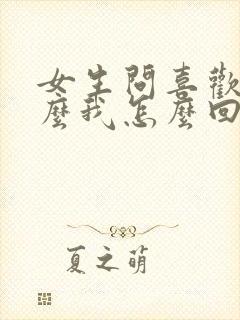 女生問喜歡
麼我怎麼回
夏之萌